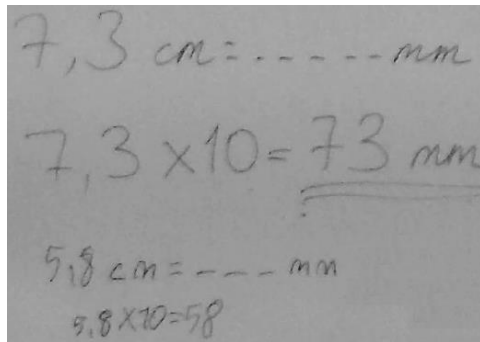 7,3 cm = . - - - - mm
7,3 × 10 = 73 mm
5,8 cm = - - - mm
5,8 × 10 = 58